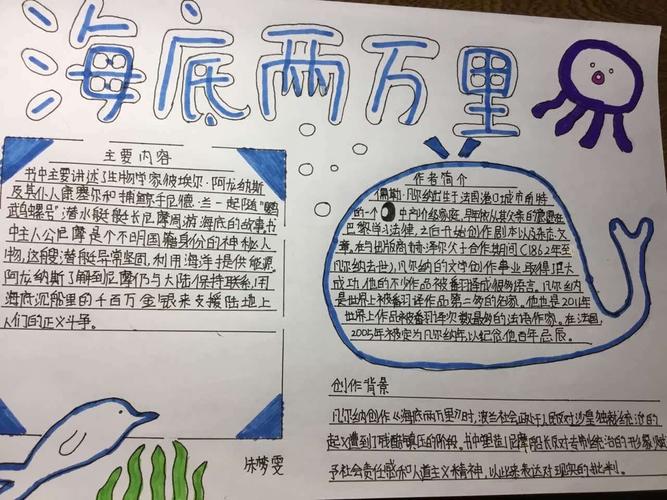 海底两万里
主要内容
书中主要讲述了生物学家彼埃尔·阿龙纳斯
及其仆人康塞尔和捕鲸手尼德·兰一起随“鹦
鹉螺号”潜水艇艇长尼摩周游海底的故事书
中主人公尼摩是个不明国籍身份的神秘人
物,这艘潜艇异常坚固,利用海洋提供能源,
阿龙纳斯了解到尼摩仍与大陆保持联系,用
海底沉船里的千百万金银来支援陆地上
人们的正义斗争。
宋梦雯
作者简介
儒勒·凡尔纳出生于法国港口城市南特
的一个中产阶级家庭,早年依从其父亲的意愿在
巴黎学习法律,之后开始创作剧本以及杂志文
章,在与出版商赫泽尔父子合作期间(1862年至
凡尔纳去世),凡尔纳的文学创作事业取得了巨大
成功,他的不少作品被翻译成很多语言。凡尔纳
是世界上被翻译作品第二多的名家,他也是2011年
世界上作品被翻译次数最多的法语作家。在法国,
2005年被定为凡尔纳年,以纪念他百年忌辰。
创作背景
凡尔纳创作《海底两万里》时,波兰社会正处于人民反对沙皇独裁统治的
起义遭到了残酷镇压的阶段。书中塑造了尼摩船长反对专制统治的形象,赋
予社会责任感和人道主义精神,以此来表达对现实的批判。